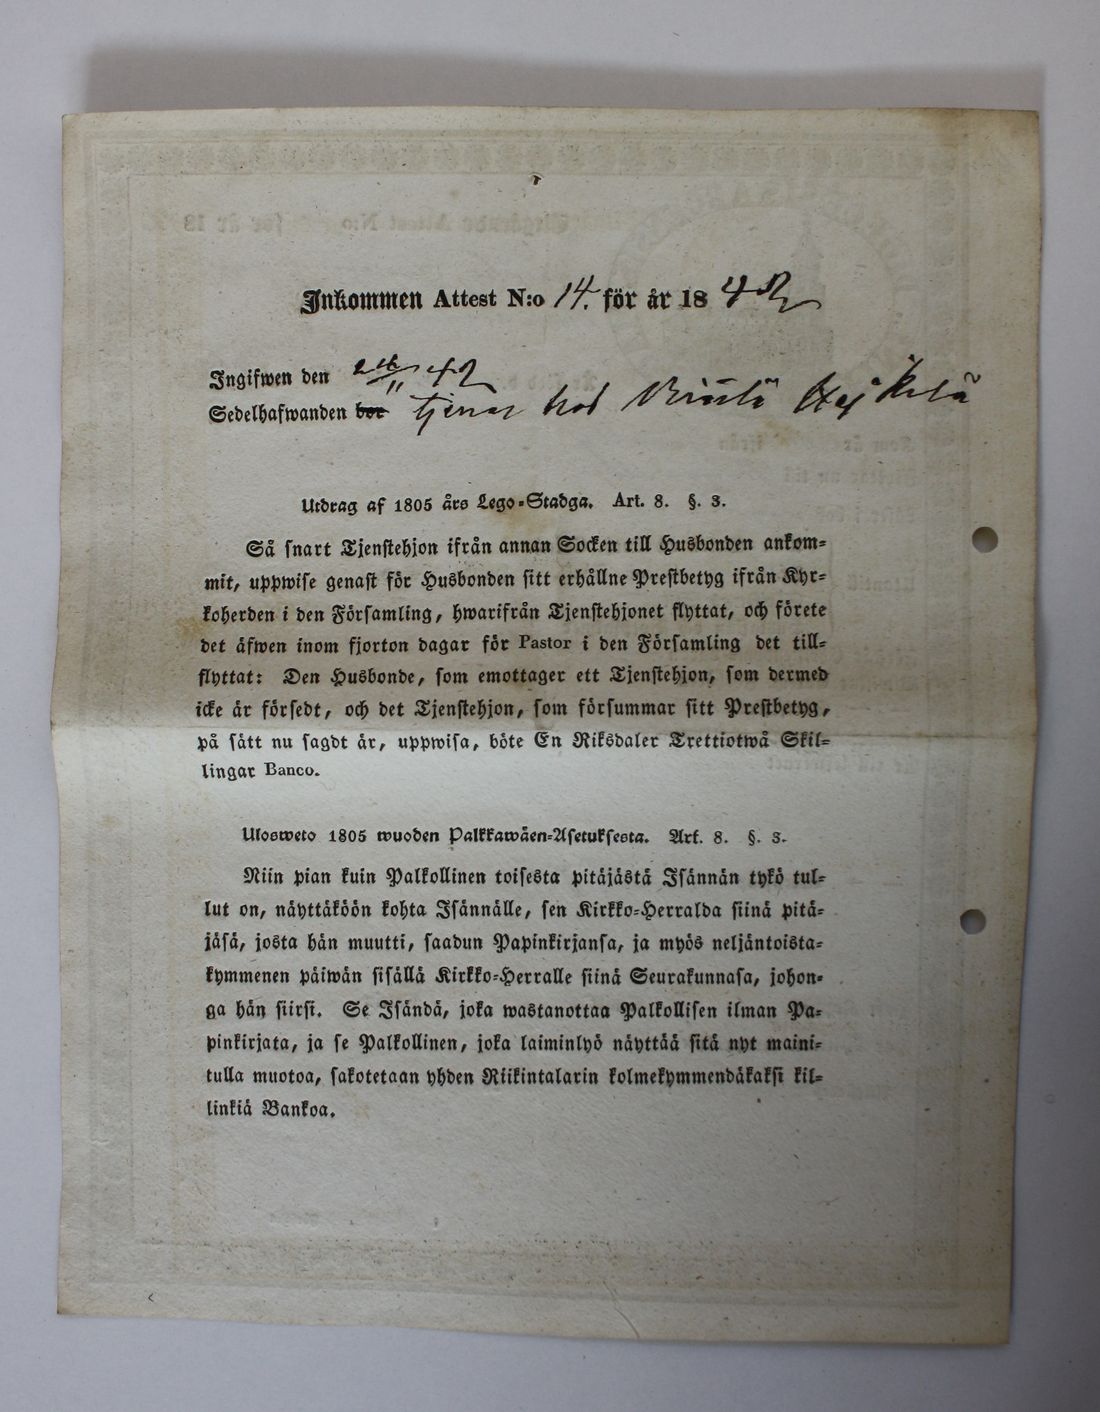 Inkommen Attest N:o 14. för år 1842
Ingifwen den 26/11 42
Sedelhafwanden bor tjenar hos
Utdrag af 1805 års Lego-Stadga. Art. 8. §. 3.
Så snart Tjenstehjon ifrån annan Socken till Husbonden ankom-
mit, uppwise genast för Husbonden sitt erhållne Prestbetyg ifrån Kyr-
koherden i den Församling, hwarifrån Tjenstehjonet flyttat, och förete
det äfwen inom fjorton dagar för Pastor i den Församling det till-
flyttat: Den Husbonde, som emottager ett Tjenstehjon, som dermed
icke är försedt, och det Tjenstehjon, som försummar sitt Prestbetyg,
på sätt nu sagdt är, uppwisa, böte En Riksdaler Trettiotwå Skil-
lingar Banco.
Ulosweto 1805 wuoden Palkkawäen-Asetuksesta. Art. 8. §. 3.
Niin pian kuin Palkollinen toisesta pitäjästä Isännän tykö tul-
lut on, näyttäköön kohta Isännälle, sen Kirkko-Herralda siinä pitä-
jäsä, josta hän muutti, saadun Papinkirjansa, ja myös neljäntoista-
kymmenen päiwän sisällä Kirkko-Herralle siinä Seurakunnasa, johon-
ga hän siirsi. Se Isändä, joka wastanottaa Palkollisen ilman Pa-
pinkirjata, ja se Palkollinen, joka laiminlyö näyttää sitä nyt maini-
tulla muotoa, sakotetaan yhden Riikintalarin kolmekymmendäkaksi kil-
linkiä Bankoa.